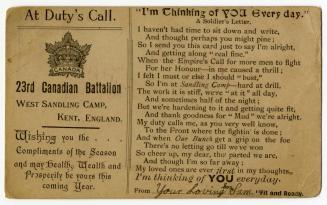 At Duty's Call.
23rd Canadian Battalion
WEST SANDLING CAMP,
KENT, ENGLAND.
Wishing you the
Compliments of the Season
and may Health, Wealth and
Prosperity be yours this
coming Year.
"I'm Thinking of YOU Every day."
A Soldier's Letter.
I haven't had time to sit down and write,
And thought perhaps you might pine;
So I send you this card just to say I'm alright,
And getting along "real fine."
When the Empire's Call for more men to fight
For her Honour—in me caused a thrill;
I felt I must or else I should "bust,"
So I'm at Sandling Camp—hard at drill.
The work it is stiff, we're "at it" all day,
And sometimes half of the night;
But we're hardening to it and getting quite fit,
And thank goodness for "Mud" we're alright.
My duty calls me, as you very well know,
To the Front where the fightin' is done;
And when Our Bunch get a grip on the foe
There's no letting go till we've won
So cheer up, my dear, tho' parted we are,
And though I'm so far away:
My loved ones are ever first in my thoughts,
I'm thinking of YOU everyday.
From Your Loving Sam. "Fit and Ready.